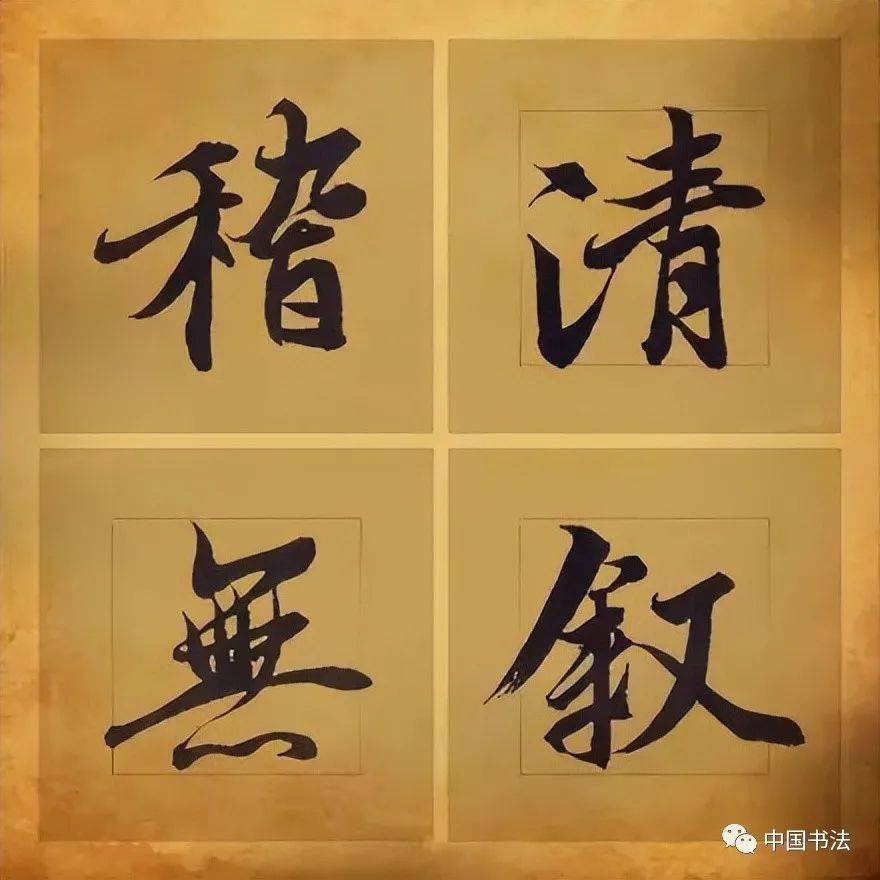 稽清
無叙
中国书法